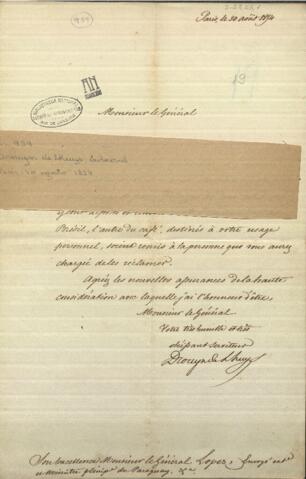 989
Paris, le 20 août 1854
BIBLIOTHECA NACIONAL
RIO DE JANEIRO
19
Monsieur le Général
989
Drouyn de Lhuys
Paris, agosto 1854
Brésil, l'autre du café, destinés à votre usage
personnel, soient remis à la personne que vous aurez
chargée de les réclamer.
Agréez les nouvelles assurances de la haute
considération avec laquelle j'ai l'honneur d'être,
Monsieur le Général
Votre très humble et très
obéissant serviteur
Drouyn de Lhuys
Son Excellence Monsieur le Général Lopez, Envoyé extre
et Ministre plénipre du Paraguay, &a